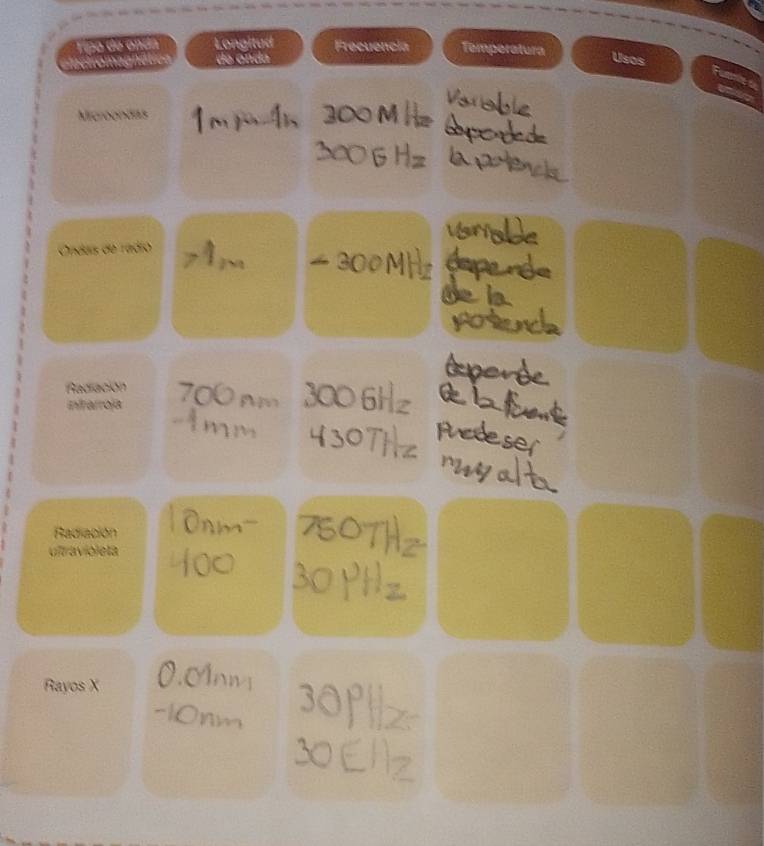 Tipo de onda
electromagnética
Longitud
de onda
Frecuencia
Temperatura
Usos
Fuente de
Microondas
300 MHz
300 GHz
Variable
la potencia
Ondas de radio
>1m
<300MHz
variable
depende
de la
potencia
Radiación
infrarroja
700 nm
-1mm
300 GHz
430THz
depende
de la fuente
Puede ser
muy alta
Radiación
ultravioleta
10nm-
400
750THz
30 PHz
Rayos X
0.01nm
-10nm
30PHz-
30 EHz